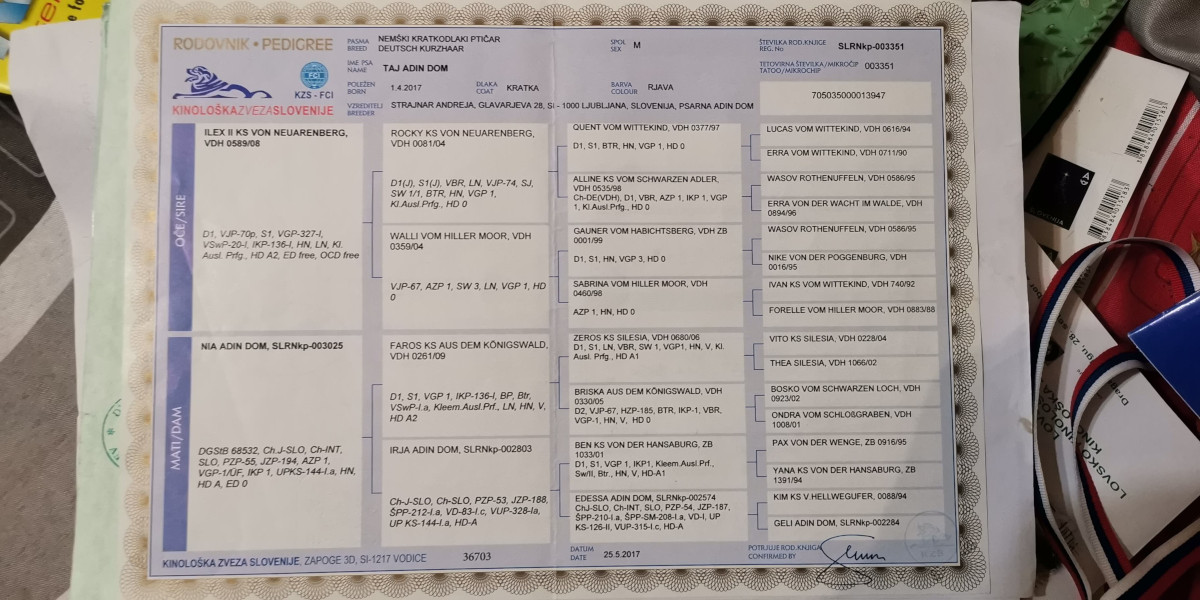 RODOVNIK • PEDIGREE
KZS - FCI
FCI
KINOLOŠKA ZVEZA SLOVENIJE
PASMA
BREED
NEMŠKI KRATKODLAKI PTIČAR
DEUTSCH KURZHAAR
SPOL
SEX
M
ŠTEVILKA ROD.KNJIGE
REG. No
SLRNkp-003351
IME PSA
NAME
TAJ ADIN DOM
TETOVIRNA ŠTEVILKA/MIKROČIP
TATOO/MIKROCHIP
003351
POLEŽEN
BORN
1.4.2017
DLAKA
COAT
KRATKA
BARVA
COLOUR
RJAVA
705035000013947
VZREDITELJ
BREEDER
STRAJNAR ANDREJA, GLAVARJEVA 28, SI - 1000 LJUBLJANA, SLOVENIJA, PSARNA ADIN DOM
OČE/SIRE
ILEX II KS VON NEUARENBERG,
VDH 0589/08
D1, VJP-70p, S1, VGP-327-I,
VSwP-20-I, IKP-136-I, HN, LN, Kl.
Ausl. Prfg., HD A2, ED free, OCD free
ROCKY KS VON NEUARENBERG,
VDH 0081/04
D1(J), S1(J), VBR, LN, VJP-74, SJ,
SW 1/1, BTR, HN, VGP 1,
Kl.Ausl.Prfg., HD 0
WALLI VOM HILLER MOOR, VDH
0359/04
VJP-67, AZP 1, SW 3, LN, VGP 1, HD
0
QUENT VOM WITTEKIND, VDH 0377/97
D1, S1, BTR, HN, VGP 1, HD 0
ALLINE KS VOM SCHWARZEN ADLER,
VDH 0535/98
Ch-DE(VDH), D1, VBR, AZP 1, IKP 1, VGP
1, Kl.Ausl.Prfg., HD 0
GAUNER VOM HABICHTSBERG, VDH ZB
0001/99
D1, S1, HN, VGP 3, HD 0
SABRINA VOM HILLER MOOR, VDH
0460/98
AZP 1, HN, HD 0
LUCAS VOM WITTEKIND, VDH 0616/94
ERRA VOM WITTEKIND, VDH 0711/90
WASOV ROTHENUFFELN, VDH 0586/95
ERRA VON DER WACHT IM WALDE, VDH
0894/96
WASOV ROTHENUFFELN, VDH 0586/95
NIKE VON DER POGGENBURG, VDH
0016/95
IVAN KS VOM WITTEKIND, VDH 740/92
FORELLE VOM HILLER MOOR, VDH 0883/88
MATI/DAM
NIA ADIN DOM, SLRNkp-003025
DGStB 68532, Ch.J-SLO, Ch-INT,
SLO, PZP-55, JZP-194, AZP 1,
VGP-1/ÜF, IKP 1, UPKS-144-I.a, HN,
HD A, ED 0
FAROS KS AUS DEM KÖNIGSWALD,
VDH 0261/09
D1, S1, VGP 1, IKP-136-I, BP, Btr,
VSwP-I.a, Kleem.Ausl.Prf., LN, HN, V,
HD A2
IRJA ADIN DOM, SLRNkp-002803
Ch-J-SLO, Ch-SLO, PZP-53, JZP-188,
ŠPP-212-I.a, VD-83-I.c, VUP-328-Ia,
UP KS-144-I.a, HD-A
ZEROS KS SILESIA, VDH 0680/06
D1, S1, LN, VBR, SW 1, VGP1, HN, V, Kl.
Ausl. Prfg., HD A1
BRISKA AUS DEM KÖNIGSWALD, VDH
0330/05
D2, VJP-67, HZP-185, BTR, IKP-1, VBR,
VGP-1, HN, V, HD 0
BEN KS VON DER HANSABURG, ZB
1033/01
D1, S1, VGP 1, IKP1, Kleem.Ausl.Prf.,
Sw/II, Btr., HN, V, HD-A1
EDESSA ADIN DOM, SLRNkp-002574
ChJ-SLO, Ch-INT, SLO, PZP-54, JZP-187,
ŠPP-210-I.a, ŠPP-SM-208-I.a, VD-I, UP
KS-126-II, VUP-315-I.c, HD-A
VITO KS SILESIA, VDH 0228/04
THEA SILESIA, VDH 1066/02
BOSKO VOM SCHWARZEN LOCH, VDH
0923/02
ONDRA VOM SCHLOßGRABEN, VDH
1008/01
PAX VON DER WENGE, ZB 0916/95
YANA KS VON DER HANSABURG, ZB
1391/94
KIM KS V.HELLWEGUFER, 0088/94
GELI ADIN DOM, SLRNkp-002284
KINOLOŠKA ZVEZA SLOVENIJE, ZAPOGE 3D, SI-1217 VODICE
36703
DATUM
DATE
25.5.2017
POTRJUJE ROD.KNJIGA
CONFIRMED BY